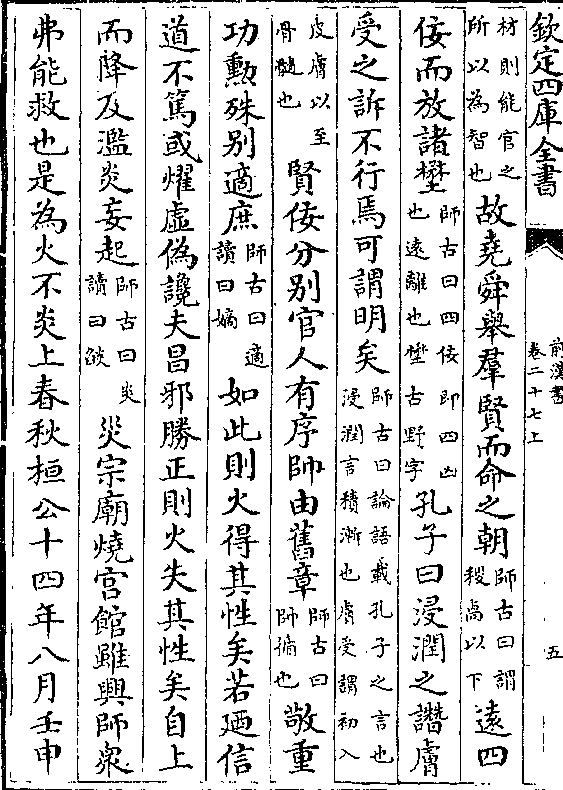 欽定四庫全書
前漢書
卷二十七上
五
材則能官之
所以為智也
故堯舜舉羣賢而命之朝
師古曰謂
稷卨以下
遠四
佞而放諸壄
師古曰四佞即四凶
也遠離也壄古野字
孔子曰浸潤之譖膚
受之訴不行焉可謂明矣
師古曰論語載孔子之言也
浸潤言積漸也膚受謂初入
皮膚以至
骨髓也
賢佞分别官人有序帥由舊章
師古曰
帥循也
敬重
功勳殊别適庶
師古曰適
讀曰嫡
如此則火得其性矣若廼信
道不篤或燿虛偽讒夫昌邪勝正則火失其性矣自上
而降及濫炎妄起
師古曰炎
讀曰燄
災宗廟燒宮館雖興師衆
弗能救也是為火不炎上春秋桓公十四年八月壬申